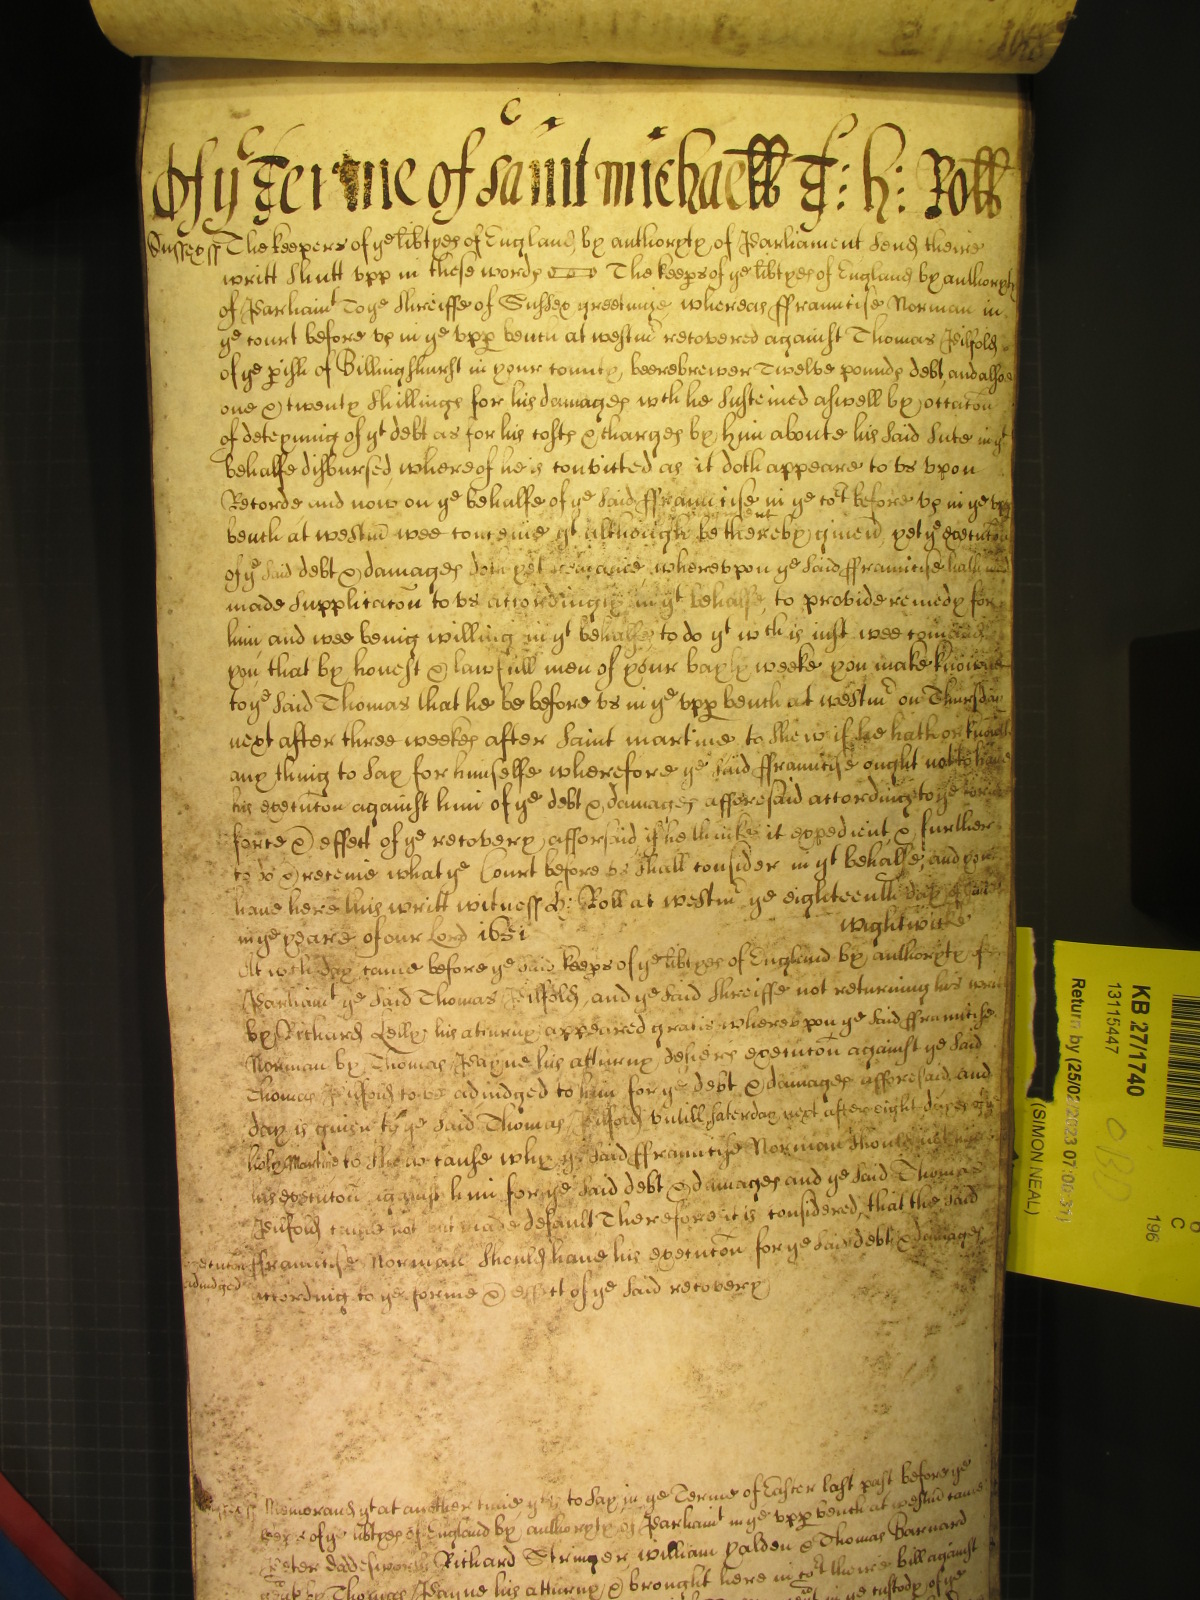 Of ye Terme of saint michaell T: h: Roll
Sussex ss The keepers of ye libtyes of England by authoryty of Parliament send theire
writt shutt upp in these words The keeps of ye libtyes of England by authoryty
of Parliamt To ye shreiffe of Sussex greetinge whereas ffrauncise Norman in
ye court before us in ye upp bench at westmr recovered against Thomas Pilfold
of ye pish of Billingshurst in your county beerebrewer Twelve pounds debt and alsoe
one & twenty shillings for his damages wch he susteined aswell by occacon
of deteyning of yt debt as for his costs & charges by him aboute his said sute in yt
behalfe disbursed whereof he is convicted as it doth appeare to us upon
Recorde and now on ye behalfe of ye said ffrauncise in ye cot before us in ye upp
bench at westmr wee conceive yt although be thereby given yet ye execucon
of ye said debt & damages whereupon ye said ffrauncise hath
made supplicacon to us accordingly in yt behalfe to provide remedy for
him and wee being willing in yt behalfe to do yt wch is just wee comand
you that by honest & lawfull men of your baylyweeke you make knowne
to ye said Thomas that he be before us in ye upp bench at westmr on Thursday
next after three weekes after saint martine to shew if he hath or knoweth
any thing to say for himselfe wherefore ye said ffrauncise ought not to have
his execucon against him of ye debt & damages afforesaid according to ye
force & effect of ye recovery afforsaid if he thinke it expedient & further
to do & receive what ye Court before us shall consider in yt behalfe and you
have here this writt witness H: Roll at westmr ye eighteenth day of
in ye yeare of our Lord 1651 Wightwick
At wch day came before ye said keeps of ye libtyes of England by authoryty of
Parliamt ye said Thomas Pilfold and ye said shreiffe not returning his writt
by Richard Kelly his atturny appeared gratis whereupon ye said ffrauncise
Norman by Thomas Payne his atturny desiers execucon against ye said
Thomas Pilfold to be adiudged to him for ye debt & damages afforesaid and
day is given to ye said Thomas Pilfold untill saterday next after eight dayes of
holy Martine to shew cause why ye said ffrauncise Norman should not
his execucon against him for ye said debt & damages and ye said Thomas
Pilfold came not but made default Therefore it is considered that the said
execucon ffrauncise Norman should have his execucon for ye said debt & damages
adiudged according to ye forme & effect of ye said recovery
Memorand yt at another time yt is to say in ye Terme of Easter last past before ye
keeps of ye libtyes of England by authoryty of Parliamt in ye upp bench at westmr came
Peter Richard Stringer william yalden & Thomas Barnard
by Thomas Payne his atturny & brought here in cot theire bill against
in ye custody of ye
KB 27/1740
13115447
Return by (25/02/2023 07:00:31)
(SIMON NEAL)
196
C